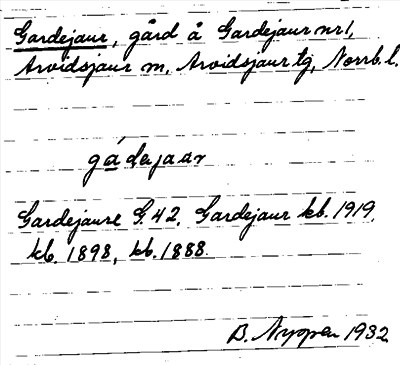 Gardejaur, gård å Gardejaur nr 1,
Arvidsjaur sn, Arvidsjaur tg, Norrb. l.
gádejaur
Gardejaure G. 42. Gardejaur kb. 1919,
kb. 1898, kb. 1888.
B. Nyppen 1932